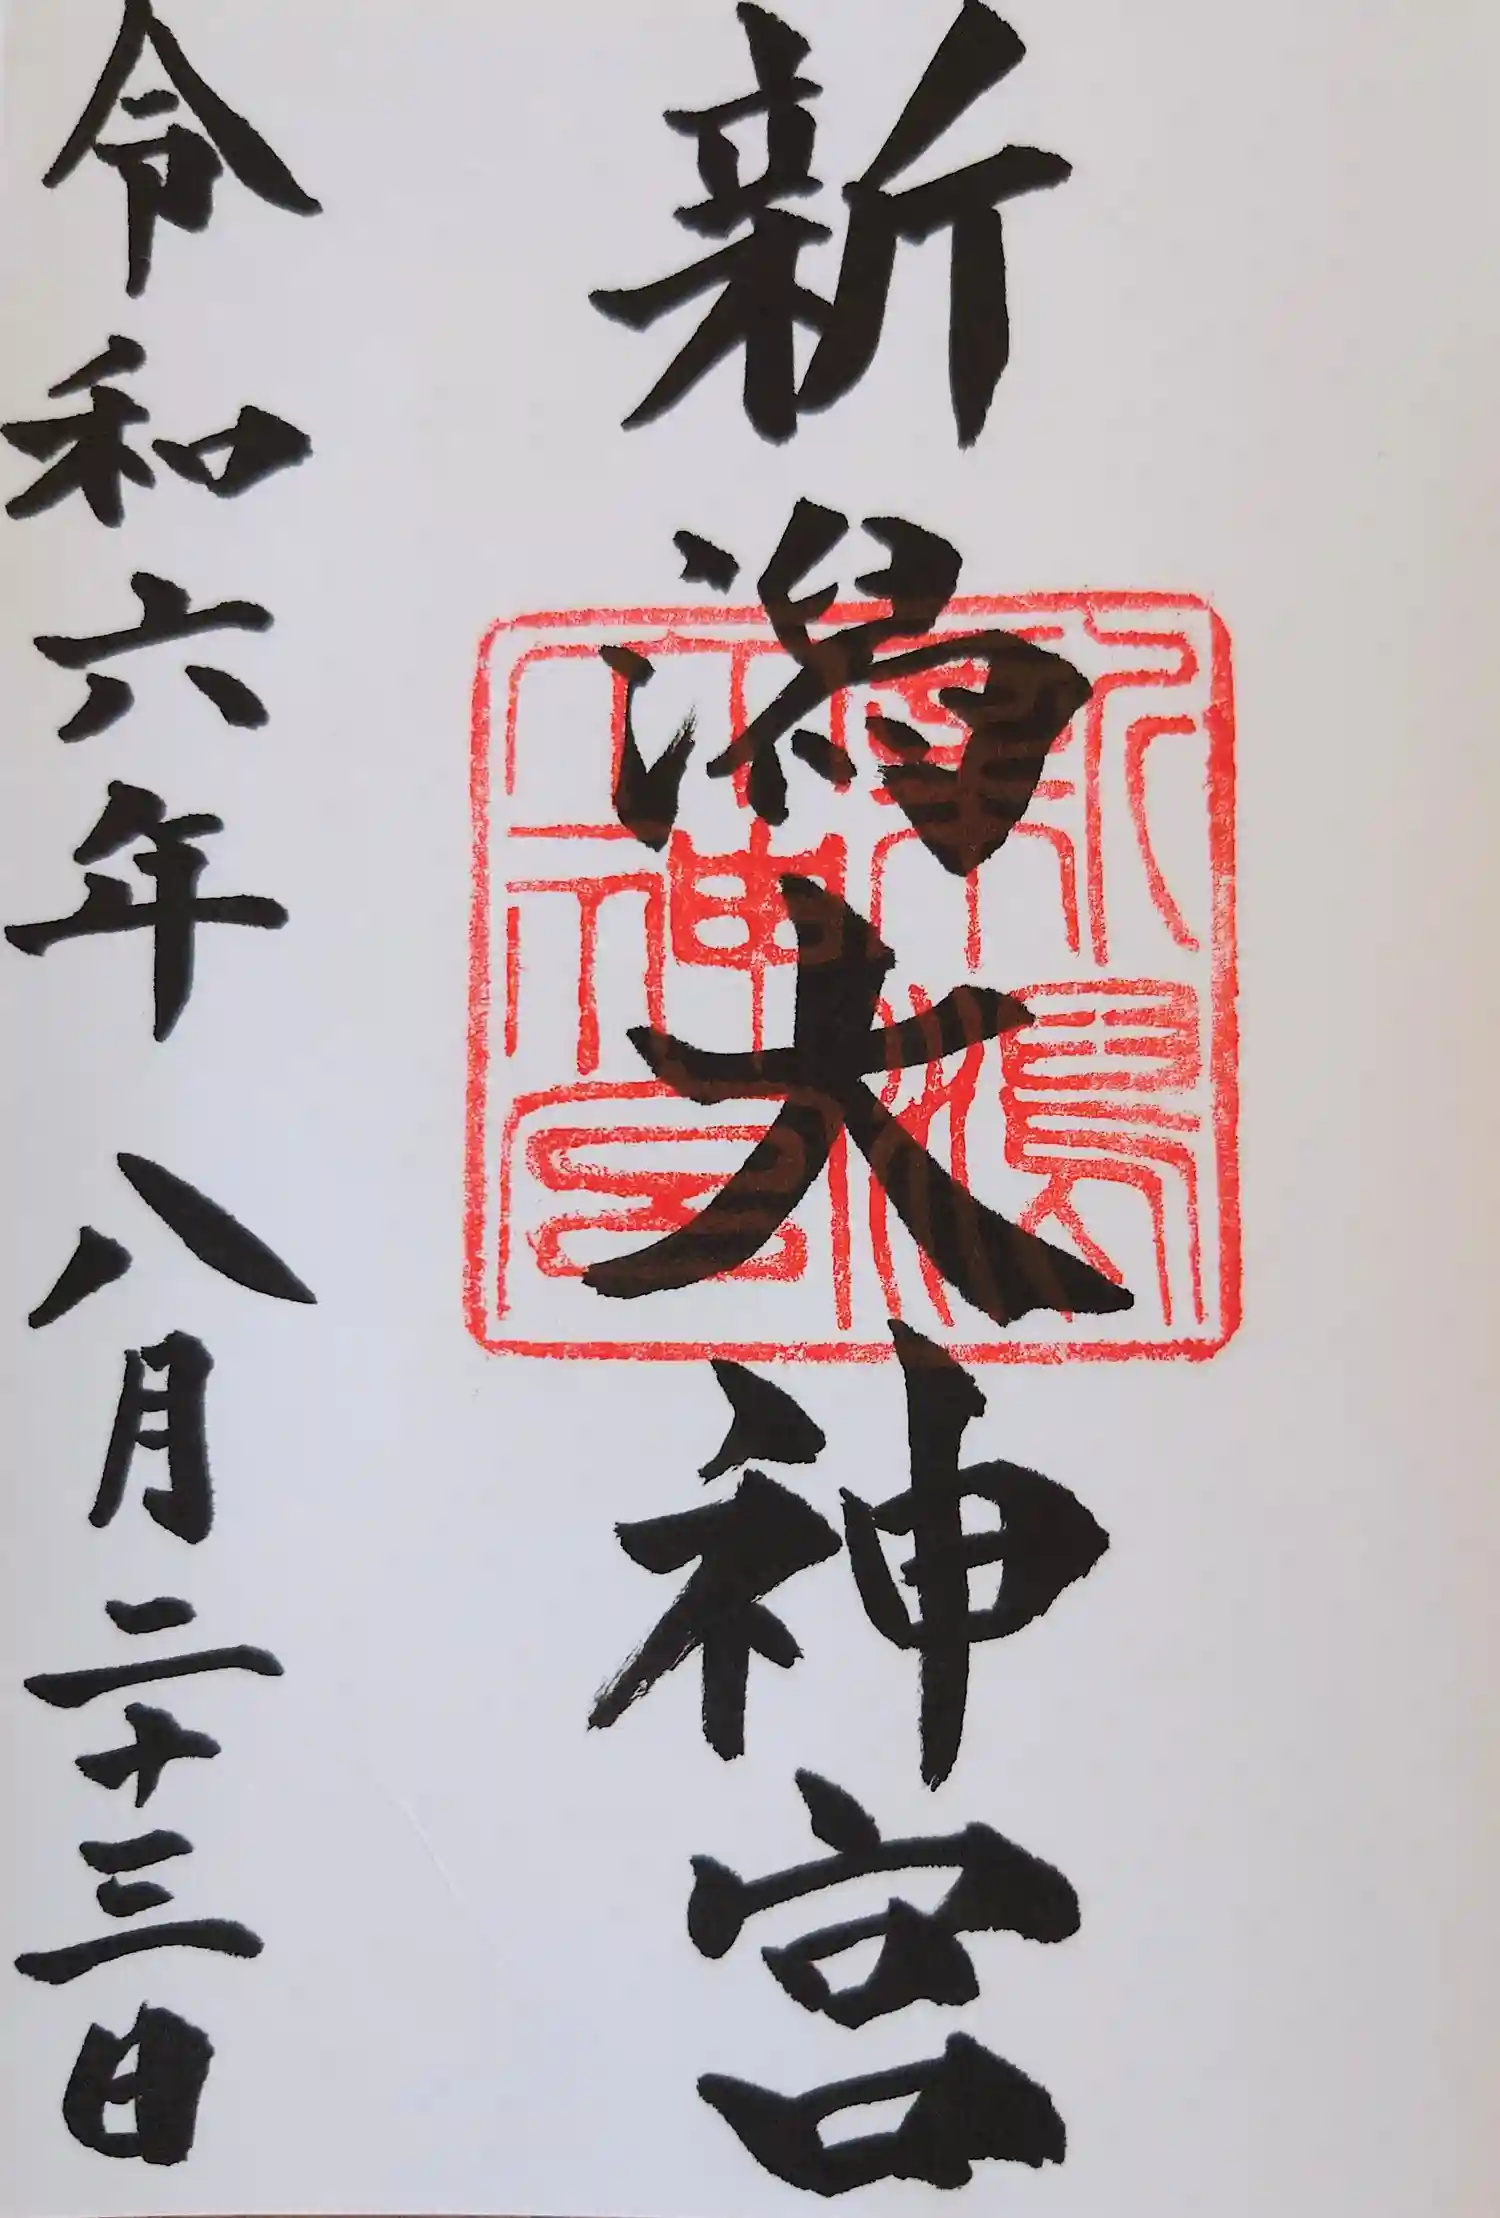 新潟大神宮
令和六年八月二十三日
新潟大神宮